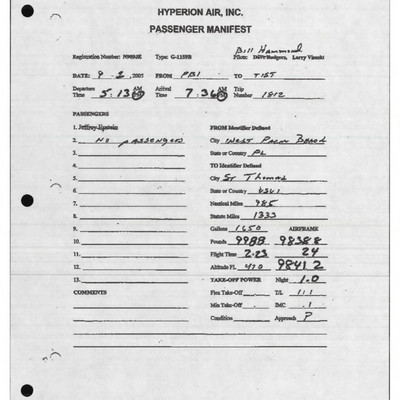 HYPERION AIR, INC.
PASSENGER MANIFEST
Bill Hammond
Registration Number: N909JE Type: G-1159B Pilots: Dave Rodgers, Larry Visoski
DATE: 9-2, 2005 FROM PBI TO TIST
Departure Time 5:13 AM PM Arrival Time 7:36 AM PM Trip Number 1812
PASSENGERS
1. Jeffrey Epstein FROM Identifier Defined
2. NO PASSENGERS City WEST PALM BEACH
3. State or Country FL
4. TO Identifier Defined
5. City ST Thomas
6. State or Country USVI
7. Nautical Miles 985
8. Statute Miles 1333
9. Gallons 1650 AIRFRAME
10. Pounds 9988 9838 8
11. Flight Time 2:23 24
12. Altitude FL 470 9841 2
13. TAKE-OFF POWER Night 1.0
COMMENTS Flex Take-Off T/L 1/1
Min Take-Off IMC .1
Condition Approach P